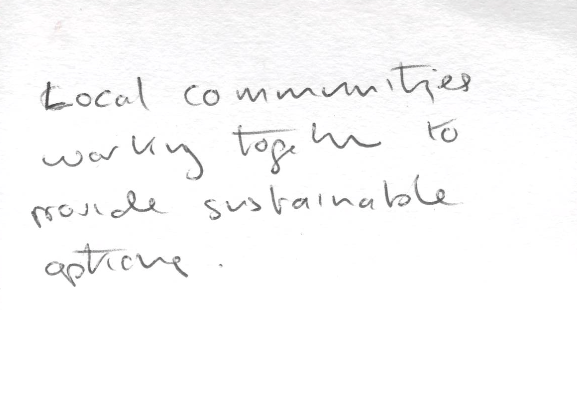 Local communities
working together to
provide sustainable
options.